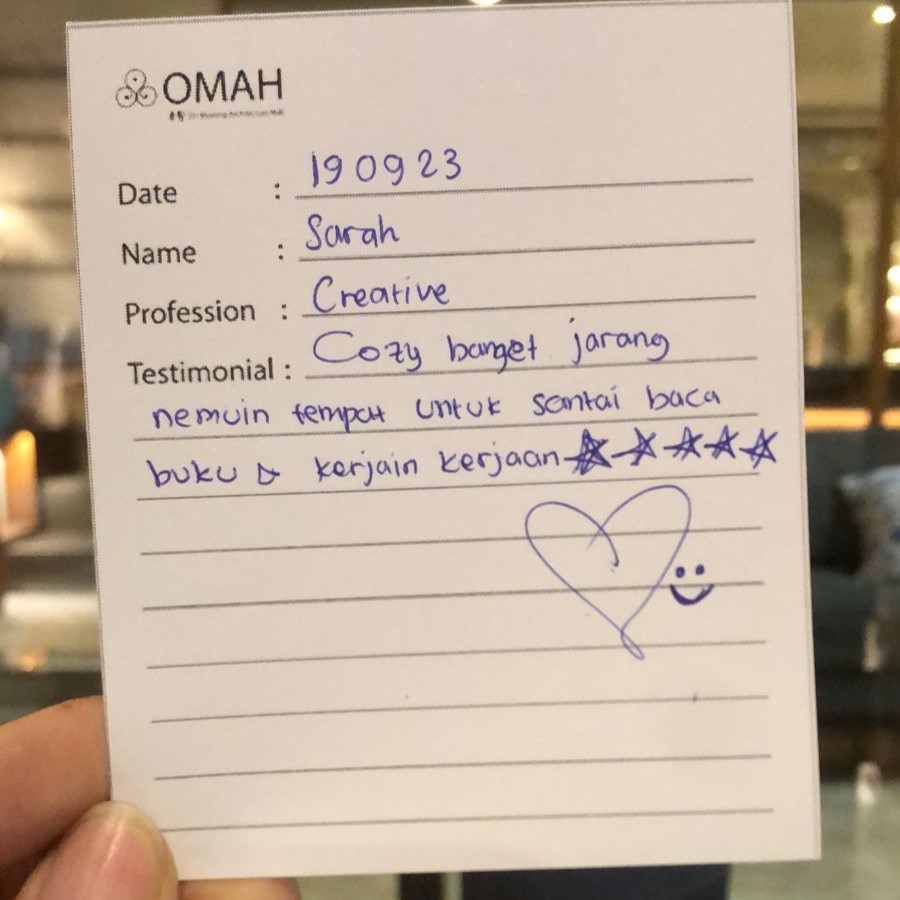 OMAH
Date : 190923
Name : Sarah
Profession : Creative
Testimonial : Cozy banget jarang
nemuin tempat untuk santai baca
buku & kerjain kerjaan